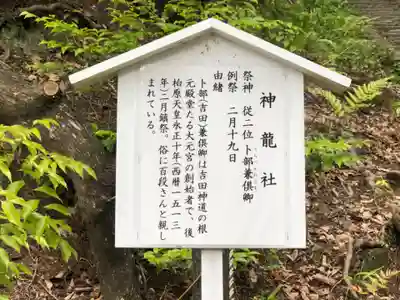 神龍社
祭神 従二位 卜部兼倶卿
例祭 二月十九日
由緒
卜部(吉田)兼倶卿は吉田神道の根
元殿堂たる大元宮の創始者で、後
柏原天皇永正十年(西暦一五一三
年)二月鎮祭。俗に百段さんと親し
まれている。